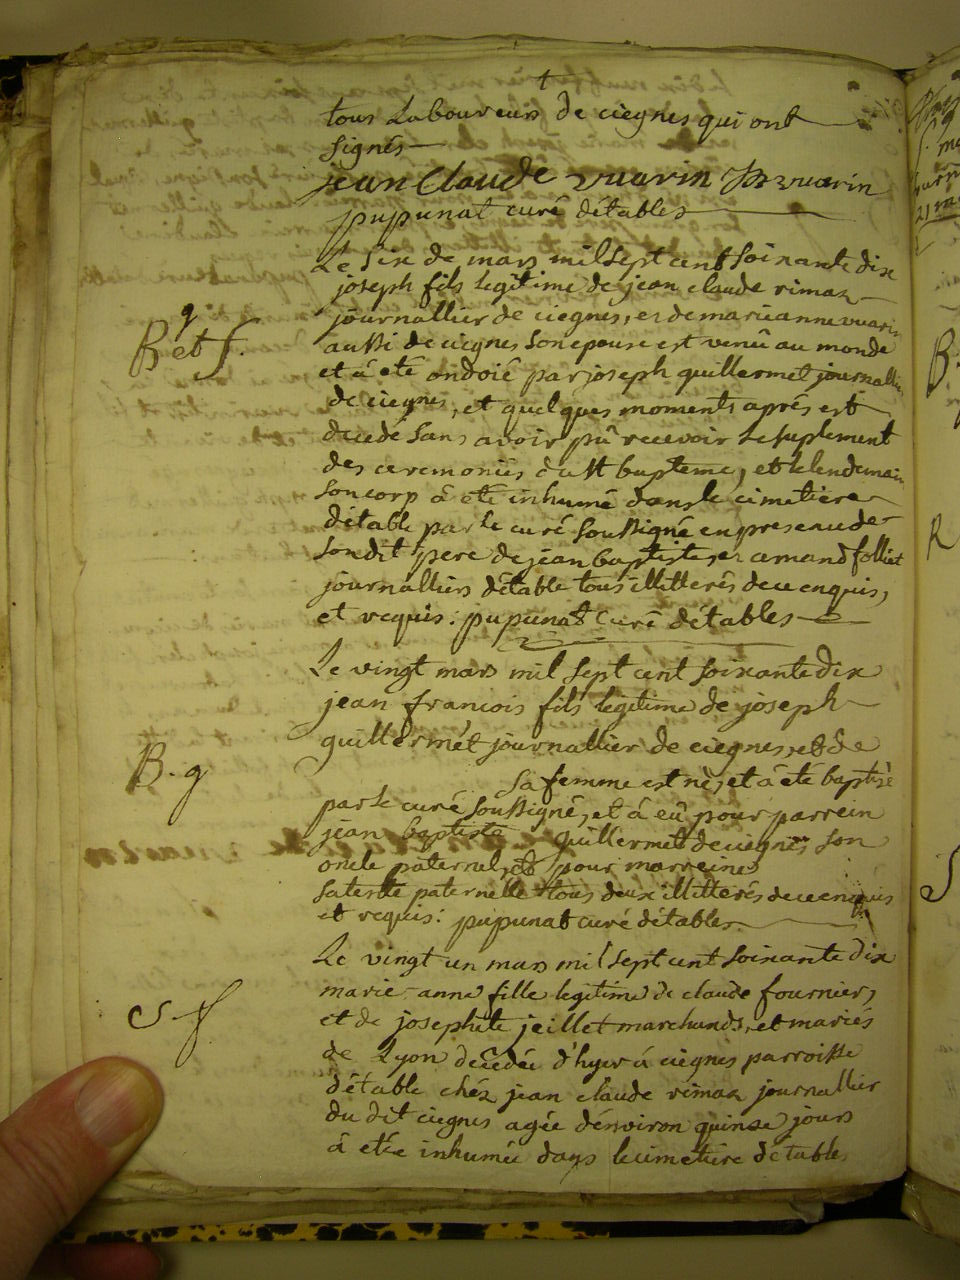 tous Laboureurs de ciegnes qui ont
signés
jean Claude vuarin JB vuarin
pupunat curé détables
Le six de mars mil sept cent soixante dix
joseph fils legitime de jean claude rimaz
journallier de ciegnes, et de marieanne vuarin
B et s. g
aussi de ciegnes son epouse est venû au monde
et à eté ondoié par joseph quillermet journallier
de ciegnes, et quelques moments aprés est
decedé sans avoir pû recevoir le suplement
des ceremonies du st bapteme, et le lendemain
son corp à eté inhumé dans le cimetiere
détable par le curé soussigné en presence de
son dit pere de jean baptiste, et amand folliet
journalliers détable tous illitterés de ce enquis,
et requis: pupunat curé détables
Le vingt mars mil sept cent soixante dix
jean francois fils legitime de joseph
quillermet journallier de ciegnes, et de
B. g
sa femme est né, et à eté baptisé
par le curé soussigné, et à eû pour parrein
jean baptiste quillermet de ciegnes son
oncle paternel, et pour marreine
sa tente paternelle tous deux illitterés de ce enquis
et requis: pupunat curé détables
Le vingt un mars mil sept cent soixante dix
marie-anne fille legitime de claude fournier,
S f
et de josephte jeillet marchands, et mariés
de Lyon decedée d'hyer à ciegnes parroisse
d'étable chéz jean claude rimaz journallier
du dit ciegnes agée d'environ quinse jours
à etée inhumée dans le cimetiere detable